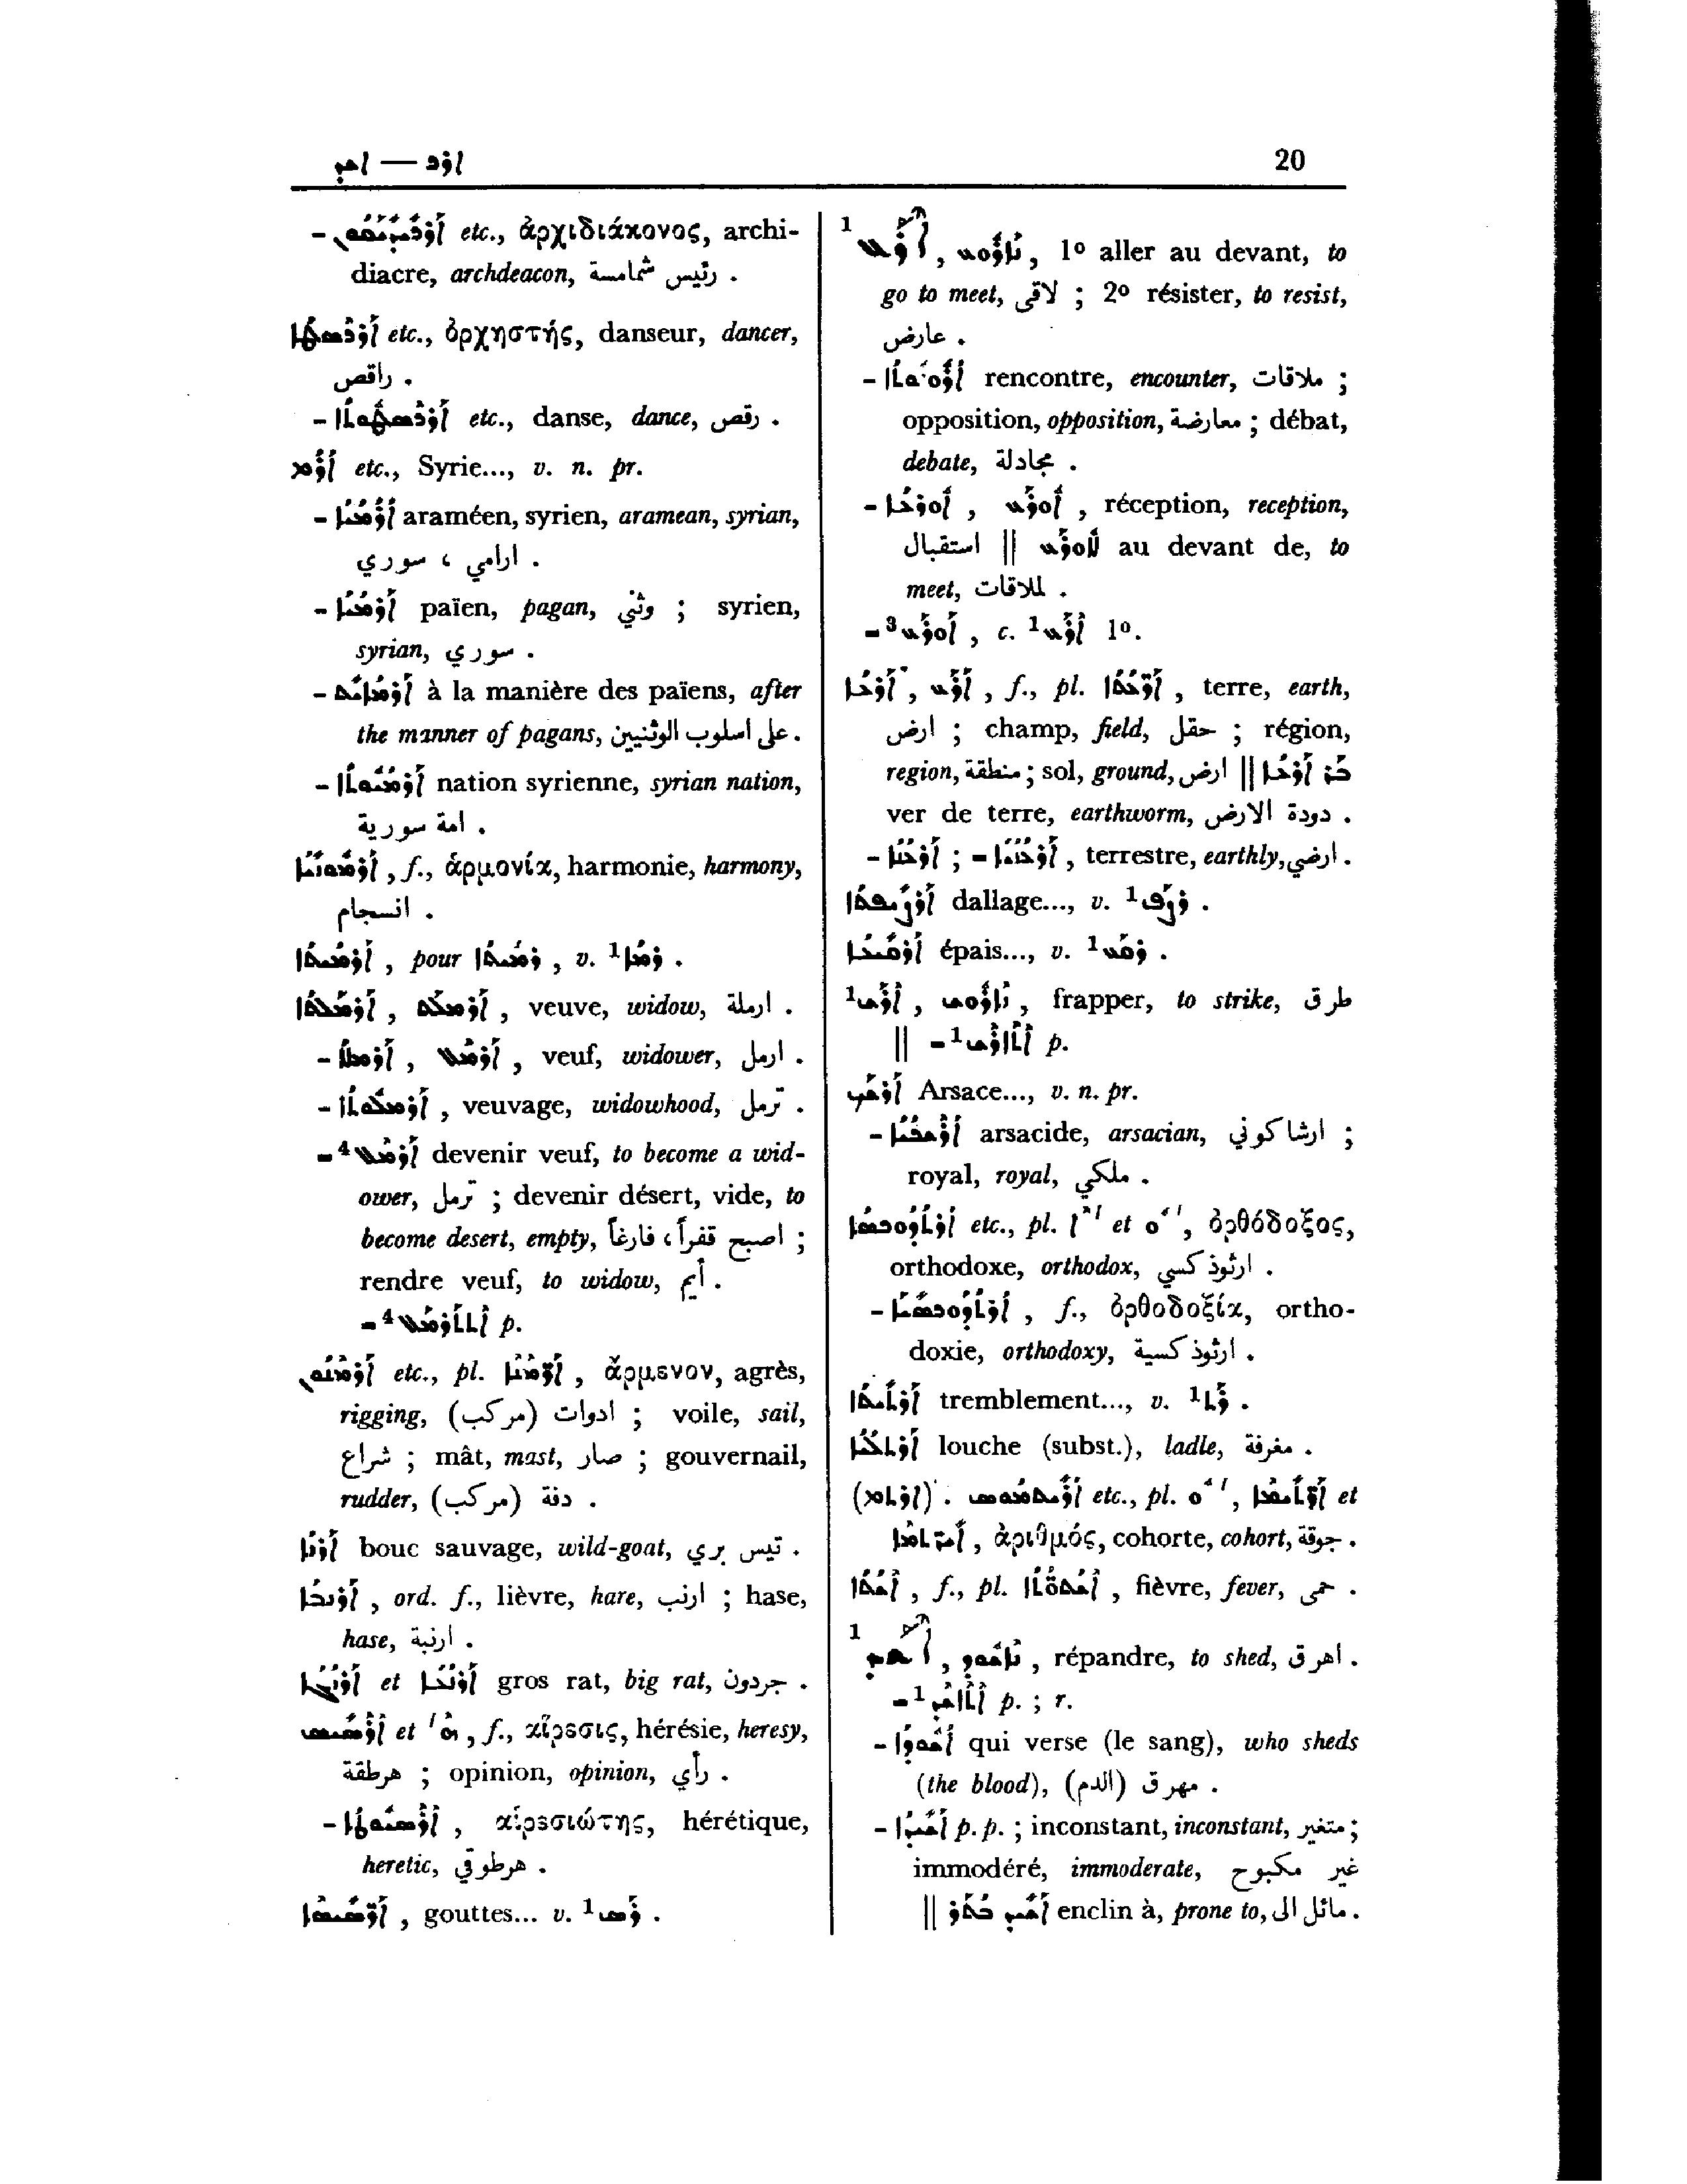 ܐܪܟ — ܐܫܕ 20
- ܐܪܟܝܕܝܩܘܢ etc., ἀρχιδιάκονος, archi-
diacre, archdeacon, رئيس شمامسة .
etc., ὀρχηστής, danseur, dancer,
راقص .
- etc., danse, dance, رقص .
ܐܪܡ etc., Syrie..., v. n. pr.
- ܐܪܡܝܐ araméen, syrien, aramean, syrian,
ارامي ، سوري .
- ܐܪܡܝܐ païen, pagan, وثني ; syrien,
syrian, سوري .
- ܐܪܡܐܝܬ à la manière des païens, after
the manner of pagans, على اسلوب الوثنيين .
- ܐܪܡܝܘܬܐ nation syrienne, syrian nation,
امة سورية .
ܐܪܡܘܢܝܐ , f., ἁρμονία, harmonie, harmony,
انسجام .
, pour , v. ¹ܪܡܐ .
ܐܪܡܠܬܐ , , veuve, widow, ارملة .
- ܐܪܡܠܐ , ܐܪܡܠ , veuf, widower, ارمل .
- ܐܪܡܠܘܬܐ , veuvage, widowhood, ترمل .
- ⁴ܐܪܡܠ devenir veuf, to become a wid-
ower, ترمل ; devenir désert, vide, to
become desert, empty, اصبح قفراً ، فارغاً ;
rendre veuf, to widow, أيم .
- ⁴ܐܬܐܪܡܠ p.
etc., pl. , ἄρμενον, agrès,
rigging, ادوات (مركب) ; voile, sail,
شراع ; mât, mast, صار ; gouvernail,
rudder, دفة (مركب) .
ܐܪܢܐ bouc sauvage, wild-goat, تيس بري .
ܐܪܢܒܐ , ord. f., lièvre, hare, ارنب ; hase,
hase, ارنبة .
et gros rat, big rat, جردون .
ܐܪܣܝܣ et , f., αἵρεσις, hérésie, heresy,
هرطقة ; opinion, opinion, رأي .
- , αἱρεσιώτης, hérétique,
heretic, هرطوقي .
, gouttes... v. ¹ܪܣ .
¹ܐܪܥ , ܢܐܪܘܥ , 1º aller au devant, to
go to meet, لاقى ; 2º résister, to resist,
عارض .
- rencontre, encounter, ملاقات ;
opposition, opposition, معارضة ; débat,
debate, مجادلة .
- ܐܘܪܥܐ , ܐܘܪܥ , réception, reception,
استقبال || ܠܐܘܪܥ au devant de, to
meet, للاقات .
- ³ܐܘܪܥ , c. ¹ܐܪܥ 1º.
ܐܪܥܐ , ܐܪܥ , f., pl. ܐܪܥܬܐ , terre, earth,
ارض ; champ, field, حقل ; région,
region, منطقة ; sol, ground, ارض ||
ver de terre, earthworm, دودة الارض .
- ܐܪܥܢܐ ; - ܐܪܥܢܝܐ , terrestre, earthly, ارضي .
ܐܪܨܝܦܬܐ dallage..., v. ¹ܪܨܦ .
épais..., v. ¹ܪܩܥ .
¹ , , frapper, to strike, طرق
|| - ¹ p.
ܐܪܫܟ Arsace..., v. n. pr.
- arsacide, arsacian, ارشاكوني ;
royal, royal, ملكي .
ܐܪܬܘܕܘܟܣܐ etc., pl. et , ὀρθόδοξος,
orthodoxe, orthodox, ارثوذكسي .
- ܐܪܬܘܕܘܟܣܝܐ , f., ὀρθοδοξία, ortho-
doxie, orthodoxy, ارثوذكسية .
ܐܪܬܝܬܐ tremblement..., v. ¹ܪܬ .
louche (subst.), ladle, مغرفة .
(ܐܪܬܡ) . etc., pl. , et
, ἀριθμός, cohorte, cohort, جوقة .
ܐܫܬܐ , f., pl. , fièvre, fever, حمى .
¹ܐܫܕ , ܢܐܫܘܕ , répandre, to shed, اهرق .
- ¹ܐܬܐܫܕ p. ; r.
- ܐܫܘܕܐ qui verse (le sang), who sheds
(the blood), مهرق (الدم) .
- ܐܫܝܕܐ p. p. ; inconstant, inconstant, متغير ;
immodéré, immoderate, غير مكبوح
|| enclin à, prone to, مائل الى .